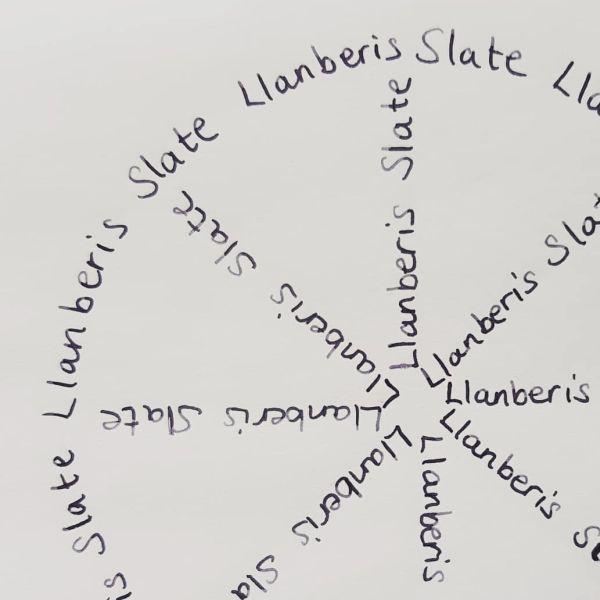 Llanberis Slate Lla
Llanberis Slate
is Slate
Llanberis Slate
Llanberis Sla
Llanberis
Llanberis S
Llanberis
Llanberis Sla
Llanberis Slate
Llanberis Slate